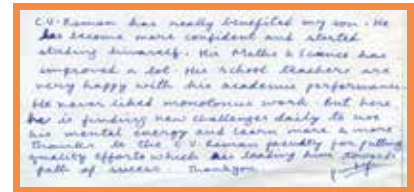 C.V. Raman has really benefited my son. He
has become more confident and started
studing himself. His Maths & Science has
improved a lot. His school teachers are
very happy with his academic performance.
He never liked monotonous work but here
he is finding new challenges daily to use
his mental energy and learn more & more
Thanks to the C.V. Raman faculty for putting
quality efforts which is leading him towards
path of success. Thankyou.